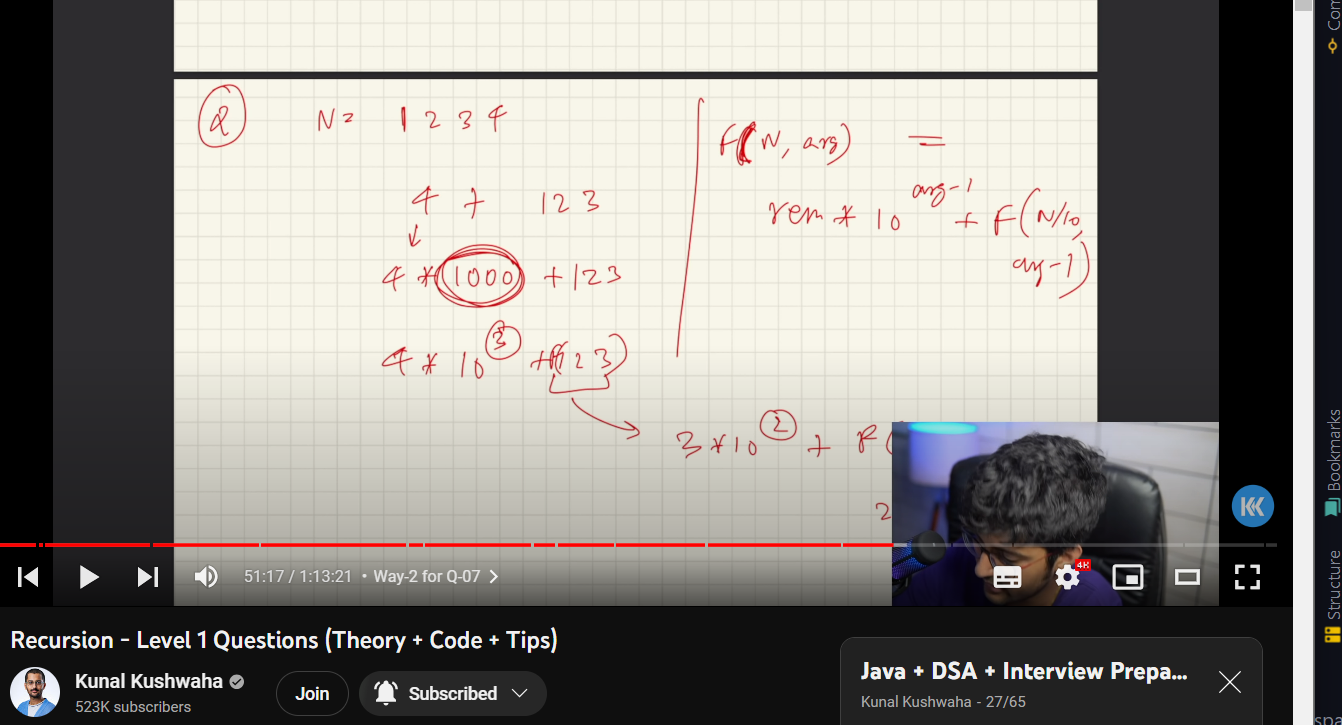 Q
N = 1 2 3 4
4 + 123
4 * 1000 + 123
4 * 10 3 + (123)
3 * 10 2 + F(
2
F(N, arg) =
rem * 10 arg-1 + F(N/10, arg-1)
KK
51:17 / 1:13:21 • Way-2 for Q-07
4K
Recursion - Level 1 Questions (Theory + Code + Tips)
Kunal Kushwaha
523K subscribers
Join
Subscribed
Java + DSA + Interview Prepa...
Kunal Kushwaha - 27/65
Com
Bookmarks
Structure
spa